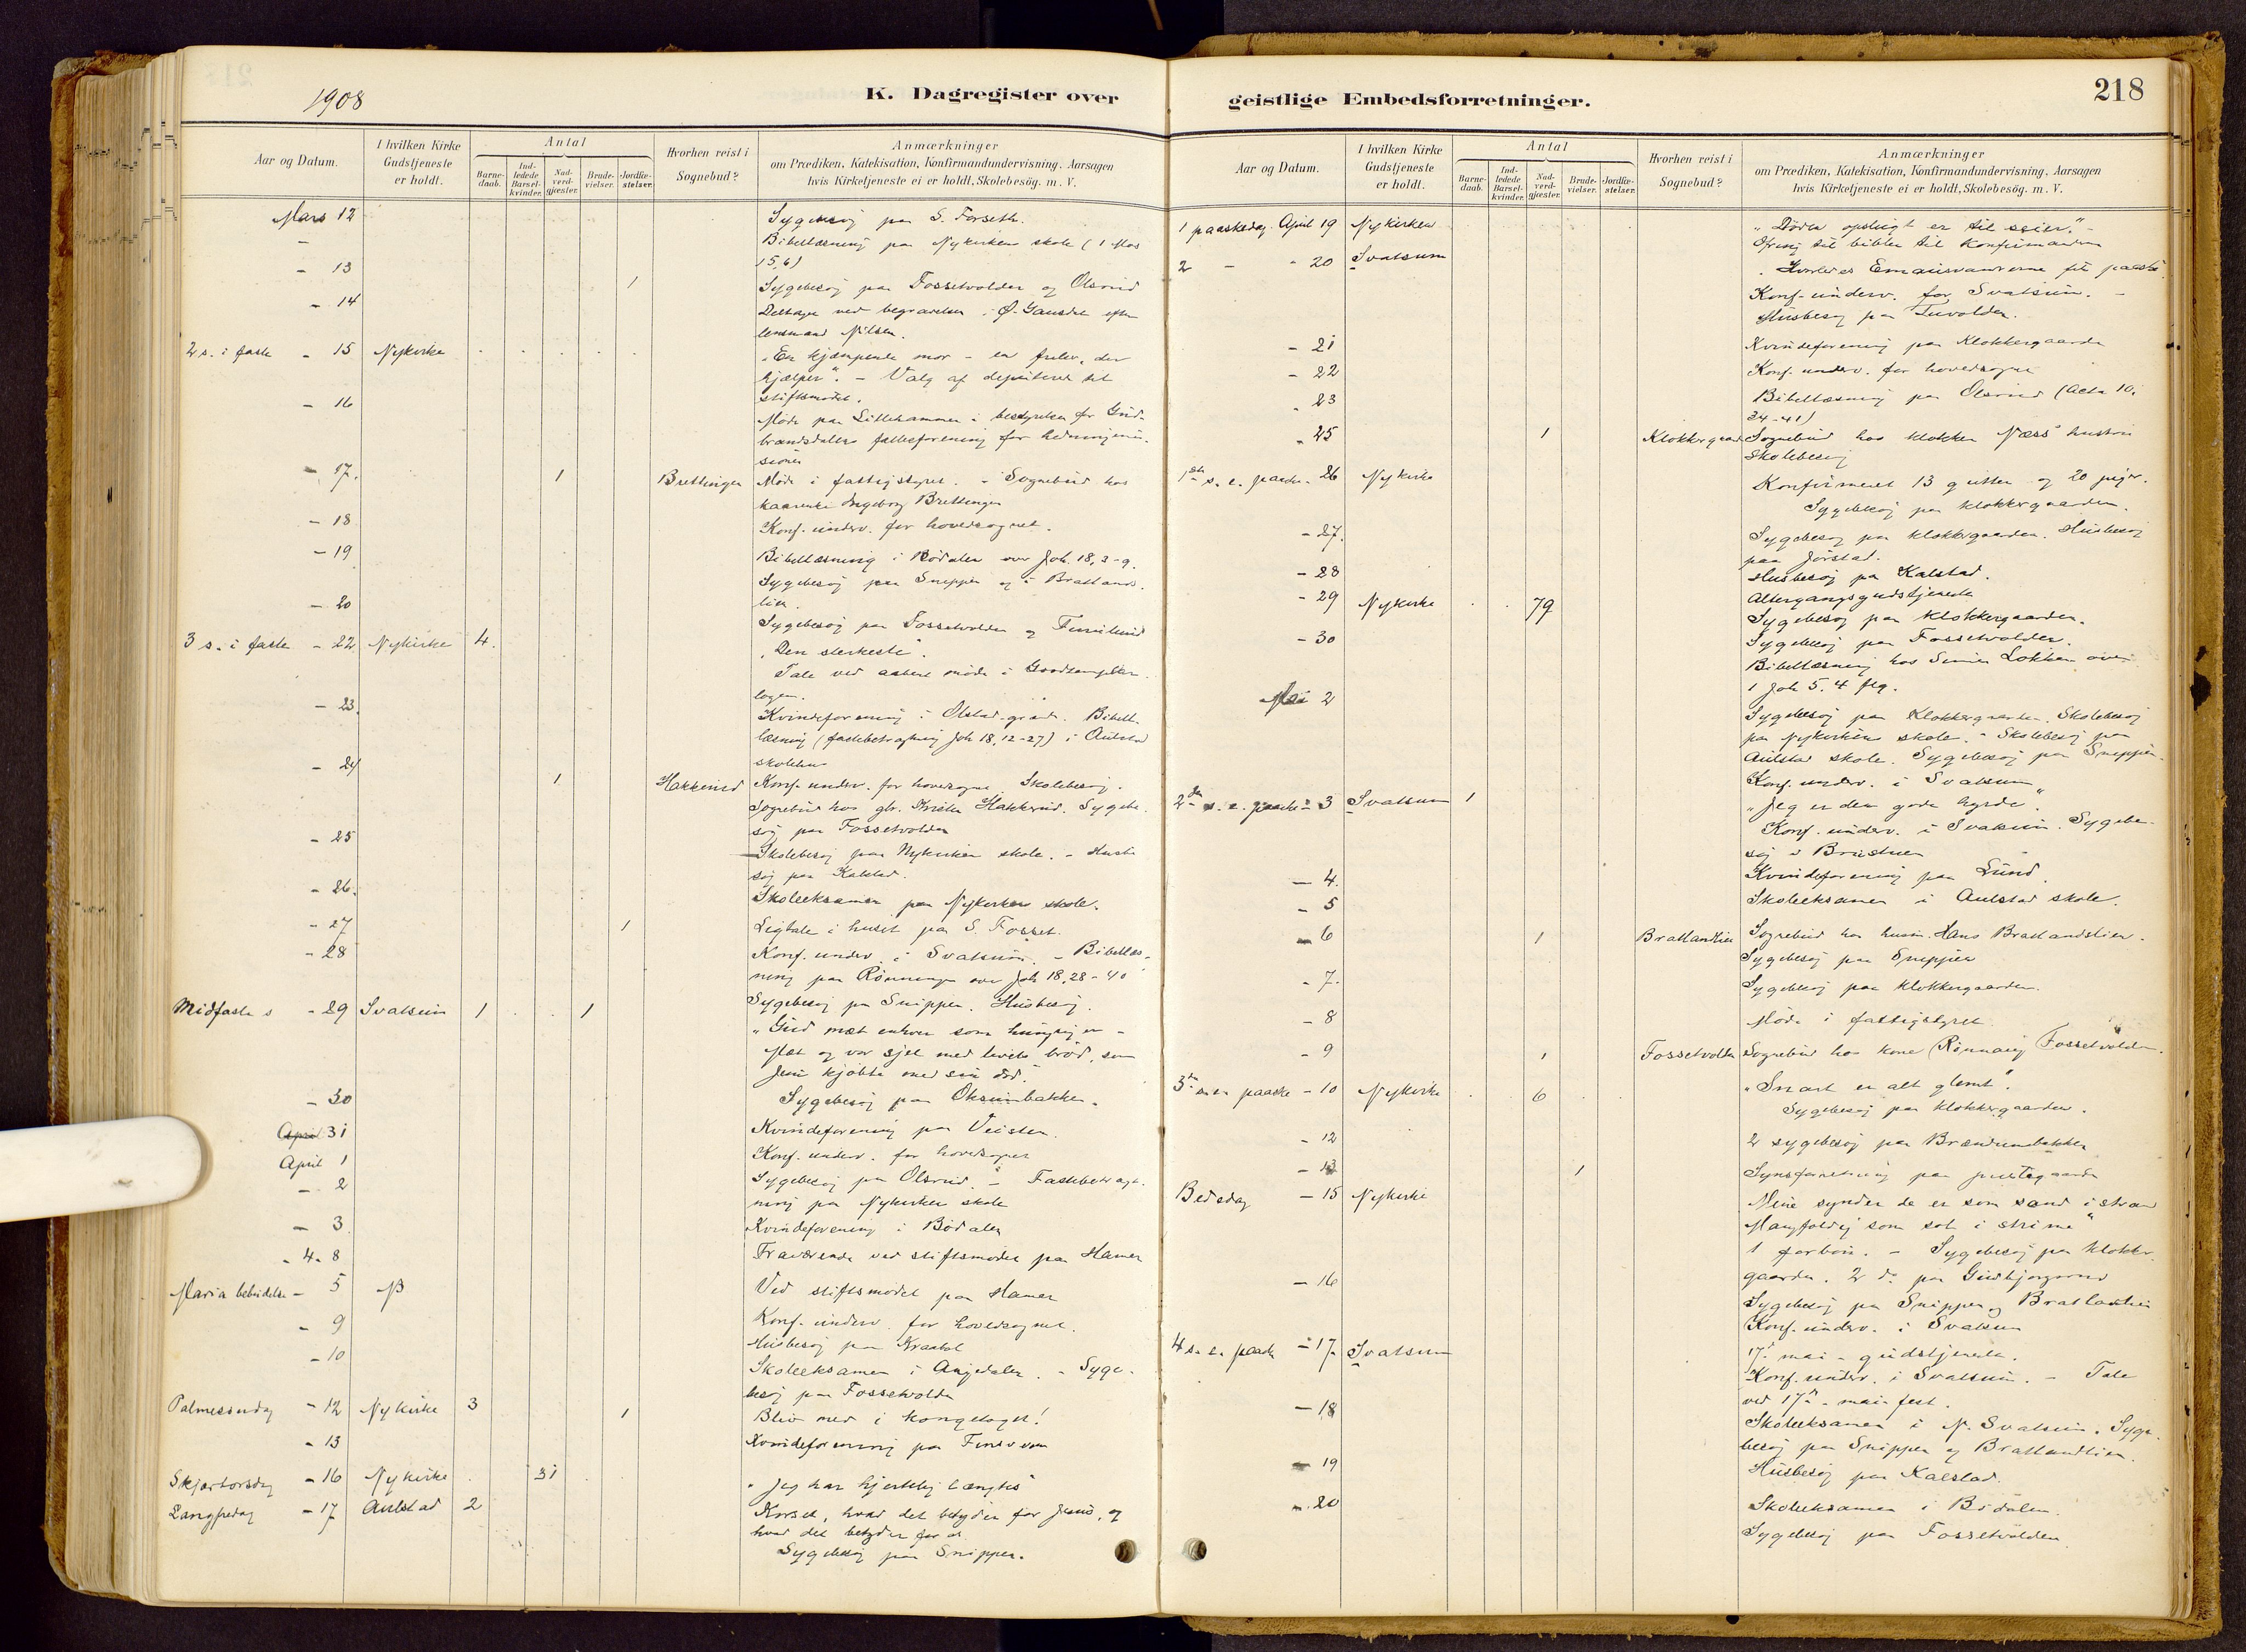 1908
K. Dagregister over
Aar og Datum.
I hvilken Kirke Gudstjeneste er holdt.
Antal
Barne-daab.
Ind-ledede Barsel-kvinder.
Nad-verd-gjæster.
Brude-vielser.
Jordfæ-stelser.
Hvorhen reist i Sognebud?
Anmærkninger
om Prædiken, Katekisation, Konfirmandundervisning, Aarsagen
hvis Kirketjeneste ei er holdt, Skolebesög. m. V.
Mars 12 Sygebesøg paa S. Forseth.
- Bibellæsning paa Nykirken skole (1 Mos
15,6)
- 13 1 Sygebesøg paa Fossetvolden og Olsrud
- 14 Deltagen ved begravelsen i Ø. Gausdal efter
lensmand Nilsen.
2 s. i faste - 15 Nykirke "En kjæmpende mor - en frelser, der
hjælper". - Valg af deputeret til
stiftsmødet.
- 16 Møde paa Lillehammer i bestyrelsen for Gud-
brandsdalens fællesforening for hedningemis-
sionen
- 17. 1 Brettingen Møde i fattigstyret. - Sognebud hos
Ingeborg Brettingen
- 18 Konf. underv. for hovedsognet.
- 19 Bibellæsning i Bødalen over Joh. 18, 3-9.
Sygebesøg paa Snippen og i Bratlands-
lien.
- 20 Sygebesøg paa Fossetvolden og
3 s. i faste - 22 Nykirke 4. "Den sterkeste".
Tale ved aabent møde i Goodtemplar-
logen.
- 23. Kvindeforening i Olstad-grd. Bibel-
læsning (fastebetragtning Joh 18, 12-27) i Aulstad
skolehus
- 24 1 Hakkerud Konf. underv. for hovedsognet Skolebesøg.
Sognebud hos Hakkerud. Sygebe-
søg paa Fossetvolden
- 25 Skolebesøg paa Nykirken skole. - Husbe-
søg paa Kalstad.
- 26. Skoleeksamen paa Nykirken skole.
- 27 1 Ligtale i huset paa S. Fosset.
- 28 Konf. underv. i Svatsum. - Bibellæs-
ning paa Rønningen over Joh 18, 28-40
Sygebesøg paa Snippen. Husbesøg.
Midfaste s - 29 Svatsum 1 1 "Gud mæt enhver som hungrig er -
Mæt og vor sjel med livets brød, som
Jesu kjøbte med sin død".
- 30 Sygebesøg paa Oksumbakken.
April 31 Kvindeforening paa Veisten.
April 1 Konf. underv. for hovedsognet
- 2 Sygebesøg paa Olsrud. - Fastebetragt-
ning paa Nykirken skole
- 3 Kvindeforening i Bødalen
- 4-8 Fraværende ved stiftsmødet paa Hamar
Maria bebudelse - 5 Ved stiftsmødet paa Hamar
- 9 Konf. underv. for hovedsognet.
Husbesøg paa
- 10 Skoleeksamen i Augedalen. - Syge-
besøg paa Fossetvolden
Palmesøndag - 12 Nykirke 3 1 Bliv med i kongetoget!
- 13 Kvindeforening paa
Skjærtorsdag - 16 Nykirke 31 "Jeg har hjertelig længtes"
Langfredag - 17 Aulstad 2 Korset, hvad det betyder for Jesus, og
hvad det betyder for os
Sygebesøg paa Snippen.
geistlige Embedsforretninger.
218
Aar og Datum.
I hvilken Kirke Gudstjeneste er holdt.
Antal
Barne-daab.
Ind-ledede Barsel-kvinder.
Nad-verd-gjæster.
Brude-vielser.
Jordfæ-stelser.
Hvorhen reist i Sognebud?
Anmærkninger
om Prædiken, Katekisation, Konfirmandundervisning, Aarsagen
hvis Kirketjeneste ei er holdt, Skolebesög. m. V.
1 paaskedag April 19 Nykirken "Døden opslugt er til seier". -
Ofring til bibler til konfirmanden
2 - - 20 Svatsum "Hvorledes Emausvandrerne fik paaske".
Konf. underv. for Svatsum. -
Husbesøg paa Tuvolden.
- 21 Kvindeforening paa Klokkergaarden
- 22 Konf. underv. for hovedsognet
- 23 Bibellæsning paa Olsrud (Acta 10,
34-41)
- 25 1 Klokkergaard Sognebud hos klokker Næss' hustru
Skolebesøg
1ste s. e. paaske - 26 Nykirke Konfirmeret 13 gutter og 20 piger.
Sygebesøg paa klokkergaarden.
- 27. Sygebesøg paa klokkergaarden. Husbesøg
paa Jørstad.
- 28 Husbesøg paa Kalstad.
- 29 Nykirke 79 Altergangsgudstjeneste
Sygebesøg paa klokkergaarden.
- 30 Sygebesøg paa Fossetvolden.
Bibellæsning hos Simen Løkken over
1 Joh 5. 4 flg.
Mai 2 Sygebesøg paa Klokkergaarden. Skolebesøg
paa Nykirken skole. - Skolebesøg paa
Aulstad skole. Sygebesøg paa Snippen.
Konf. underv. i Svatsum
2den s. e. paaske - 3 Svatsum 1 "Jeg er den gode hyrde".
Konf. underv. i Svatsum. Sygebe-
søg i
- 4. Kvindeforening paa Lund.
- 5 Skoleeksamen i Aulstad skole.
- 6 1 Bratlandlien Sognebud hos husm. Hans Bratlandslien.
Sygebesøg paa Snippen
- 7. Sygebesøg paa klokkergaarden.
- 8 Møde i fattigstyret
- 9 1 Fossetvolden Sognebud hos kone Rønnaug Fossetvolden.
3die s. e. paaske - 10 Nykirke 6 "Snart er alt glemt".
Sygebesøg paa klokkergaarden.
- 12 2 sygebesøg paa
- 13 1 Synsforretning paa prestegaarden
Bededag - 15 Nykirke Mine synder de er som sand i strand
Mangfoldig som sot i strime"
1 forbøn. - Sygebesøg paa Klokker-
gaarden. 2 do paa
- 16 Sygebesøg paa Snippen og Bratlandlien
Konf. underv. i Svatsum
4 s. e. paaske - 17. Svatsum 17de mai - gudstjeneste.
Konf. underv. i Svatsum. - Tale
ved 17de mai-fest.
- 18 Skoleeksamen i N. Svatsum. Syge-
besøg paa Snippen og Bratlandlien.
- 19 Husbesøg paa Kalstad.
- 20 Skoleeksamen i Bødalen.
Sygebesøg paa Fossetvolden